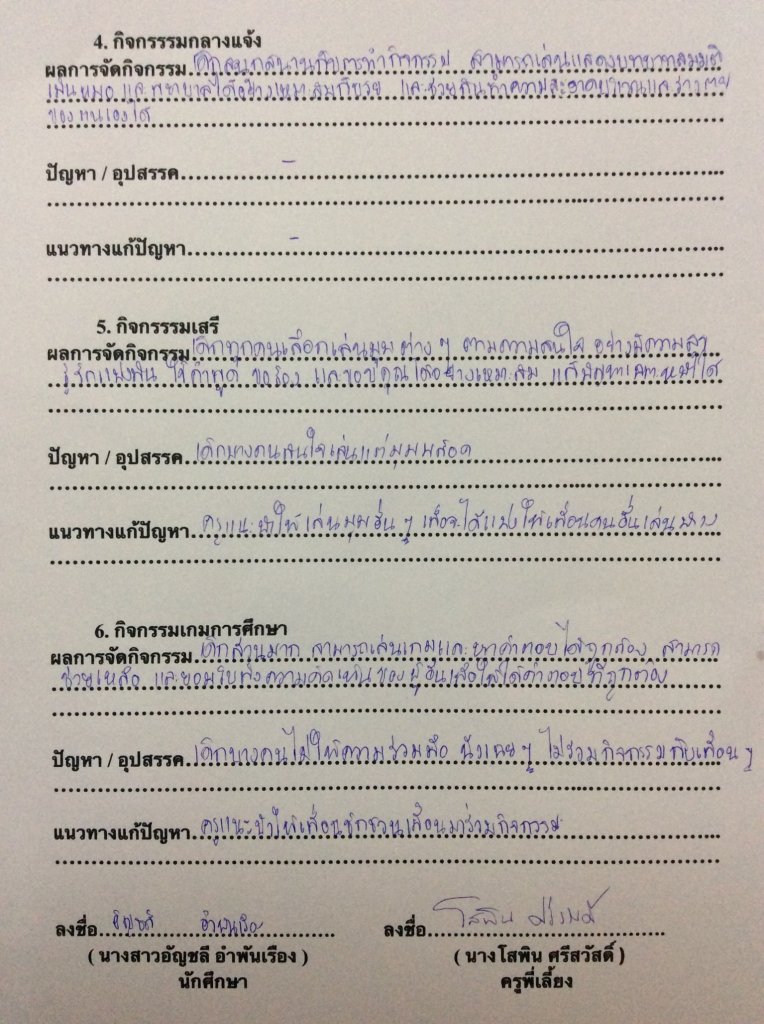 4. กิจกรรรมกลางแจ้ง
ผลการจัดกิจกรรม เด็กสนุกสนานกับการทำกิจกรรม สามารถเล่นแสดงบทบาทสมมติ
เป็นหมอและพยาบาลได้อย่างเหมาะสมกับวัย และช่วยกันทำความสะอาดบริเวณและร่างกาย
ของตนเองได้
ปัญหา / อุปสรรค -
แนวทางแก้ปัญหา -
5. กิจกรรรมเสรี
ผลการจัดกิจกรรม เด็กทุกคนเลือกเล่นมุมต่าง ๆ ตามความสนใจ อย่างมีความสุข
รู้จักแบ่งปัน ใช้คำพูด ขอร้อง และขอบคุณได้อย่างเหมาะสม แก้ปัญหาเฉพาะหน้าได้
ปัญหา / อุปสรรค เด็กบางคนสนใจเล่นแต่มุมบล็อก
แนวทางแก้ปัญหา ครูแนะนำให้เล่นมุมอื่น ๆ เพื่อจะได้แบ่งให้เพื่อนคนอื่นเล่นบ้าง
6. กิจกรรมเกมการศึกษา
ผลการจัดกิจกรรม เด็กส่วนมาก สามารถเล่นเกมและหาคำตอบได้ถูกต้อง สามารถ
ช่วยเหลือ และยอมรับฟังความคิดเห็นของผู้อื่นเพื่อให้ได้คำตอบที่ถูกต้อง
ปัญหา / อุปสรรค เด็กบางคนไม่ให้ความร่วมมือ นั่งเฉยๆ ไม่ร่วมกิจกรรมกับเพื่อน ๆ
แนวทางแก้ปัญหา ครูแนะนำให้เพื่อนชักชวนเพื่อนมาร่วมกิจกรรม
ลงชื่อ อัญชลี อำพันเรือง ลงชื่อ โสพิน ศรีสวัสดิ์
( นางสาวอัญชลี อำพันเรือง ) ( นางโสพิน ศรีสวัสดิ์ )
นักศึกษา ครูพี่เลี้ยง